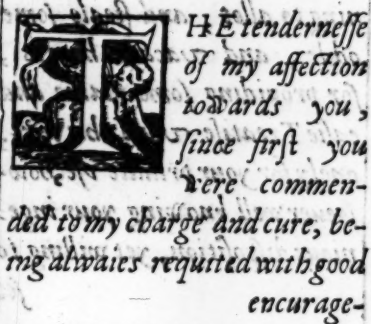 THE tendernesse
of my affection
towards you,
since first you
were commen-
ded to my charge and cure, be-
ing alwaies requited with good
encurage-